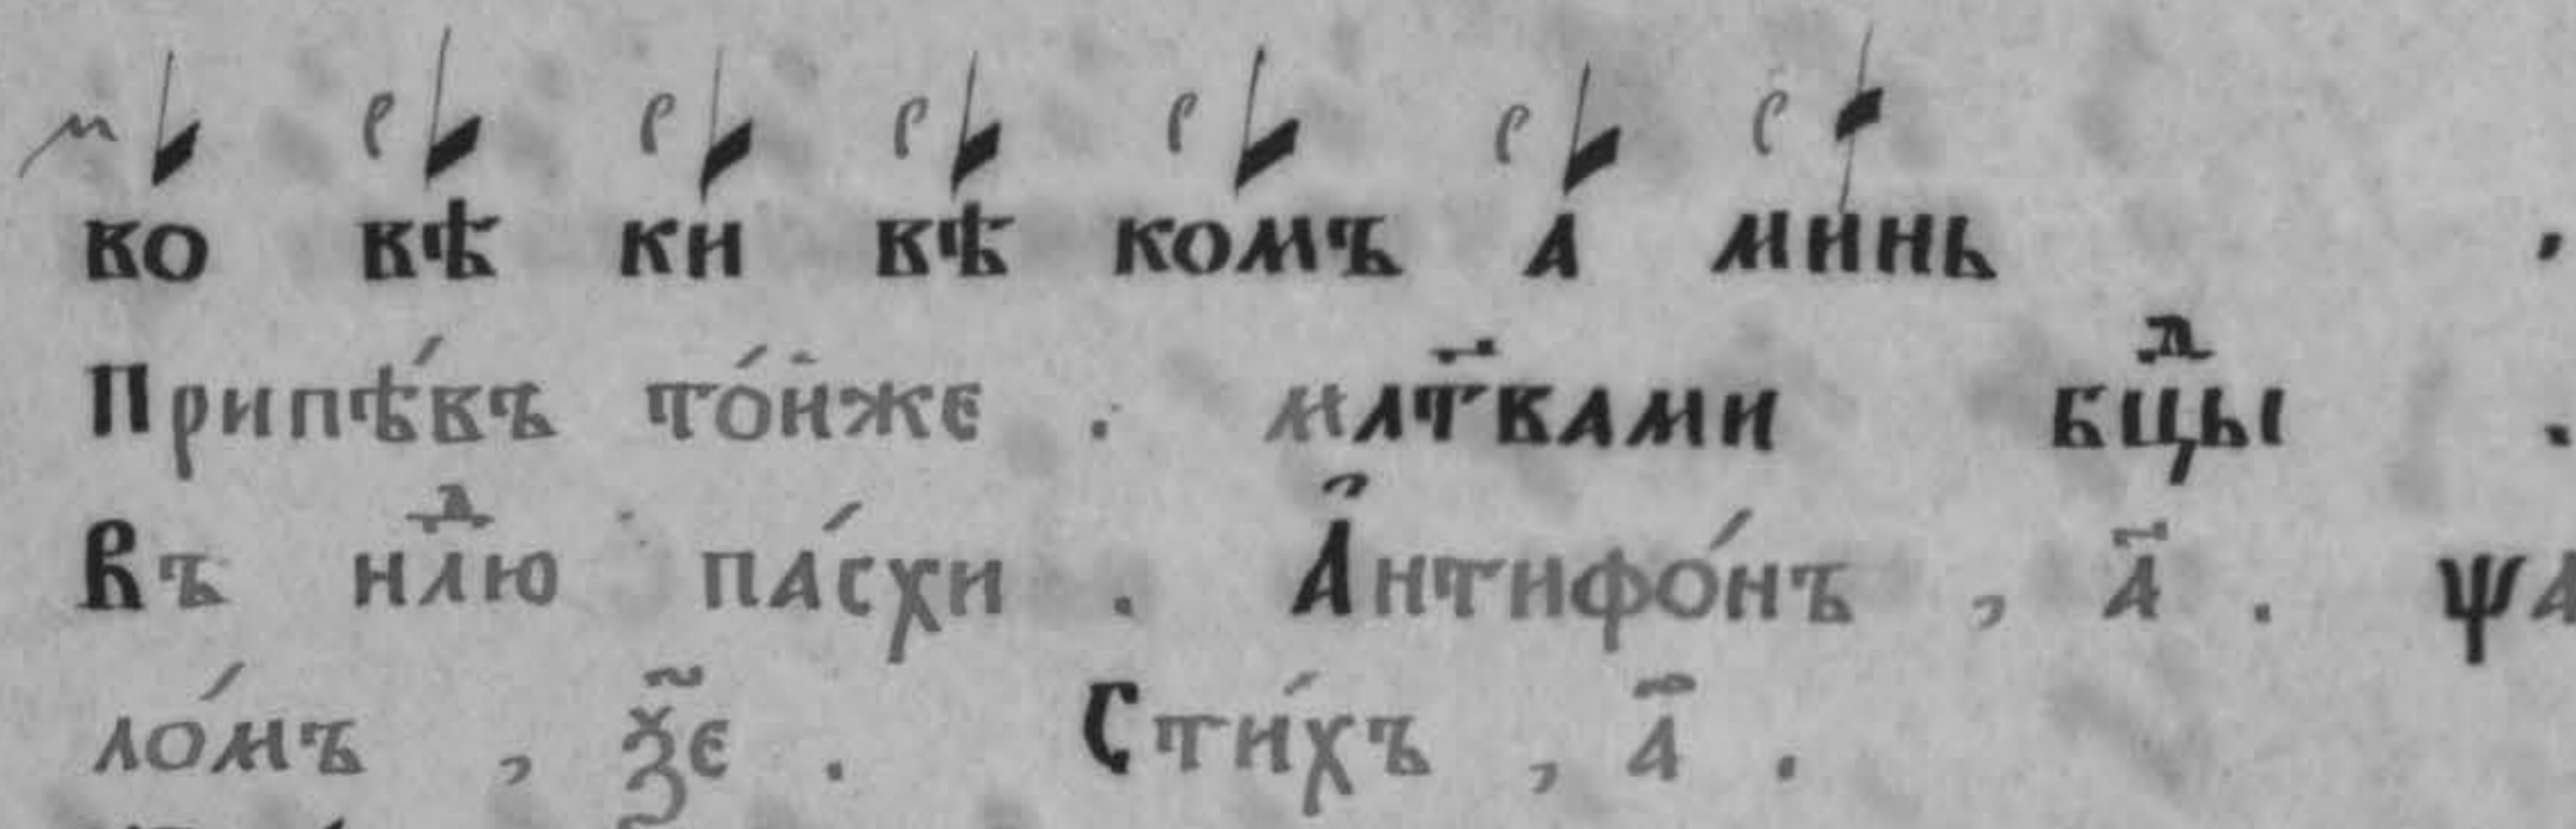 м р р р р р р
ко вѣ ки вѣ комъ а минь .
Припѣ́въ то́йже . мл҃твами бцⷣы .
Въ нлⷣю па́схи . А҆нтифо́нъ , а҃ . ψа
ло́мъ , ѯ҃є . Сти́хъ , а҃ .